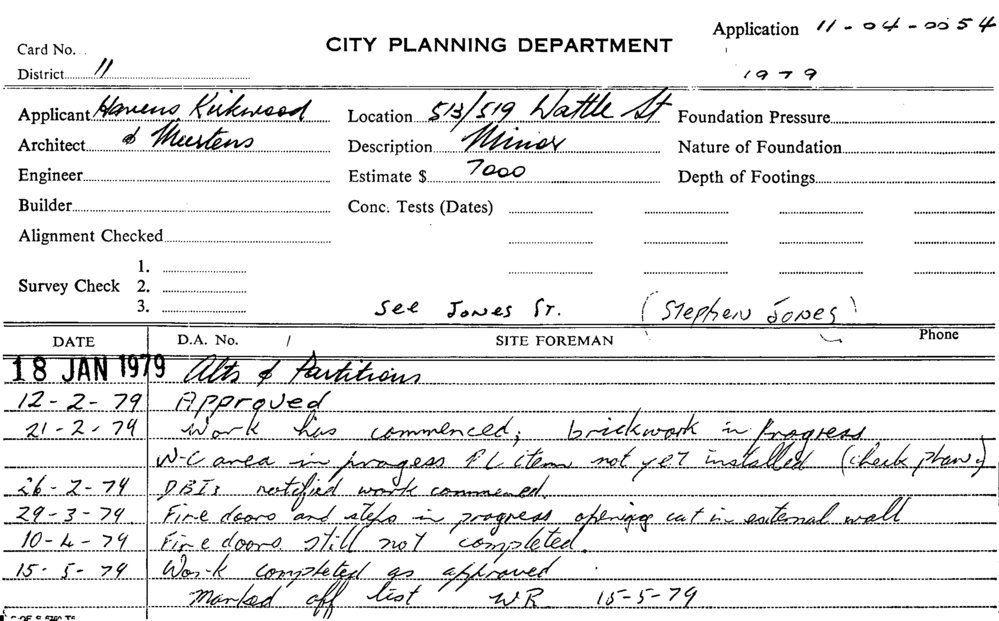 Application 11-04-0054
Card No.
CITY PLANNING DEPARTMENT
District 11
1979
Applicant Havens Kirkwood Location 513/519 Wattle St Foundation Pressure
Architect & Meertens Description Minor Nature of Foundation
Engineer Estimate $ 7000 Depth of Footings
Builder Conc. Tests (Dates)
Alignment Checked
1.
Survey Check 2.
3.
See Jones St. (Stephen Jones)
DATE D.A. No. / SITE FOREMAN Phone
18 JAN 1979 Alts & Partitions
12-2-79 Approved
21-2-79 Work has commenced; brickwork in progress
W-C area in progess not yet installed (check plan.)
26-2-79 DBIs notified work commenced.
29-3-79 Fire doors and steps in progress opening cut in external wall
10-4-79 Fire doors still not completed.
15-5-79 Work completed as approved
Marked off list WR 15-5-79